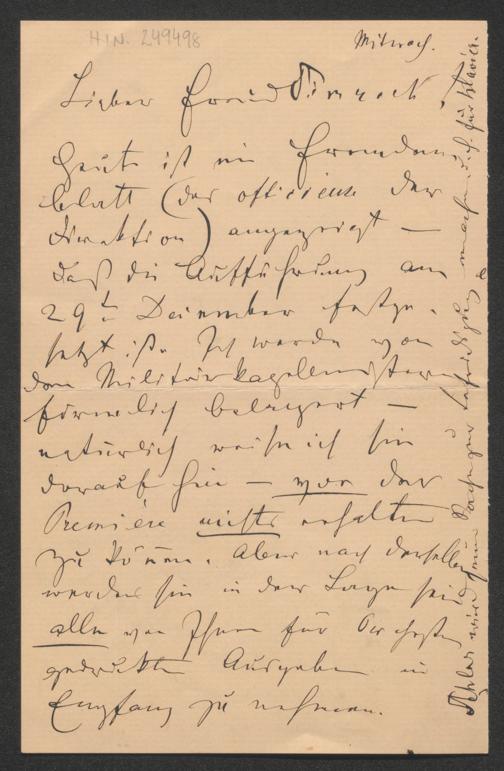 H.I.N. 249498
Mittwoch.
Lieber Freund Simrock!
Heute ist im Fremden-
blatt (das officieuse der
Direktion) angezeigt —
daß die Aufführung am
29t December festge-
setzt ist. Ich werde von
den Militärkapellmeistern
förmlich belagert —
natürlich weise ich sie
darauf hin — vor der
Première nichts erhalten
zu können. Aber nach derselben
werden sie in der Lage sein
alle von Ihnen für Orchester
gedruckten Ausgaben in
Empfang zu nehmen.
wird seine Sache zur Befriedigung machen d.h. für Klavier.